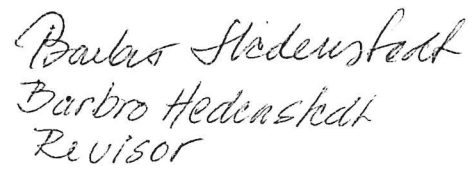 Barbro Hedenstedt
Barbro Hedenstedt
Revisor